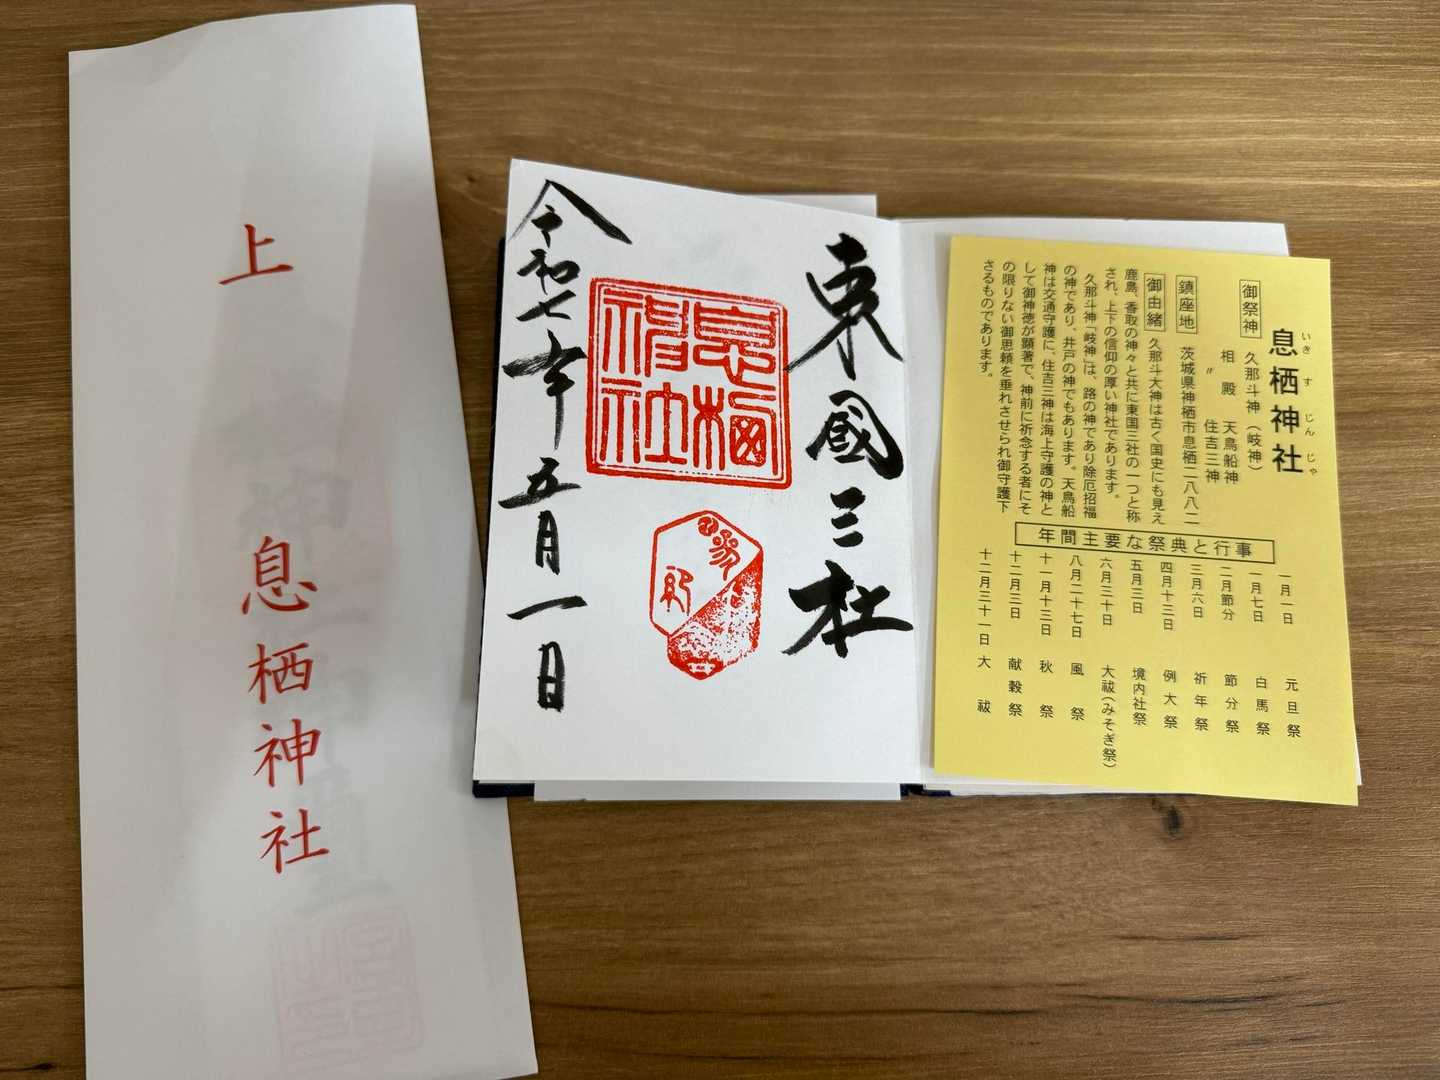 上
息栖神社
東國三社
息栖神社
参拝
令和七年五月一日
いきすじんじゃ
息栖神社
御祭神 久那斗神（岐神）
相殿 天鳥船神
〃 住吉三神
鎮座地 茨城県神栖市息栖二八八二
御由緒 久那斗大神は古く国史にも見え
鹿島、香取の神々と共に東国三社の一つと称
され、上下の信仰の厚い神社であります。
久那斗神「岐神」は、路の神であり除厄招福
の神であり、井戸の神でもあります。天鳥船
神は交通守護に、住吉三神は海上守護の神と
して御神徳が顕著で、神前に祈念する者にそ
の限りない御恩頼を垂れさせられ御守護下
さるものであります。
年間主要な祭典と行事
一月一日 元旦祭
一月七日 白馬祭
二月節分 節分祭
三月六日 祈年祭
四月十三日 例大祭
五月三日 境内社祭
六月三十日 大祓（みそぎ祭）
八月二十七日 風祭
十一月十三日 秋祭
十二月三日 献穀祭
十二月三十一日 大祓